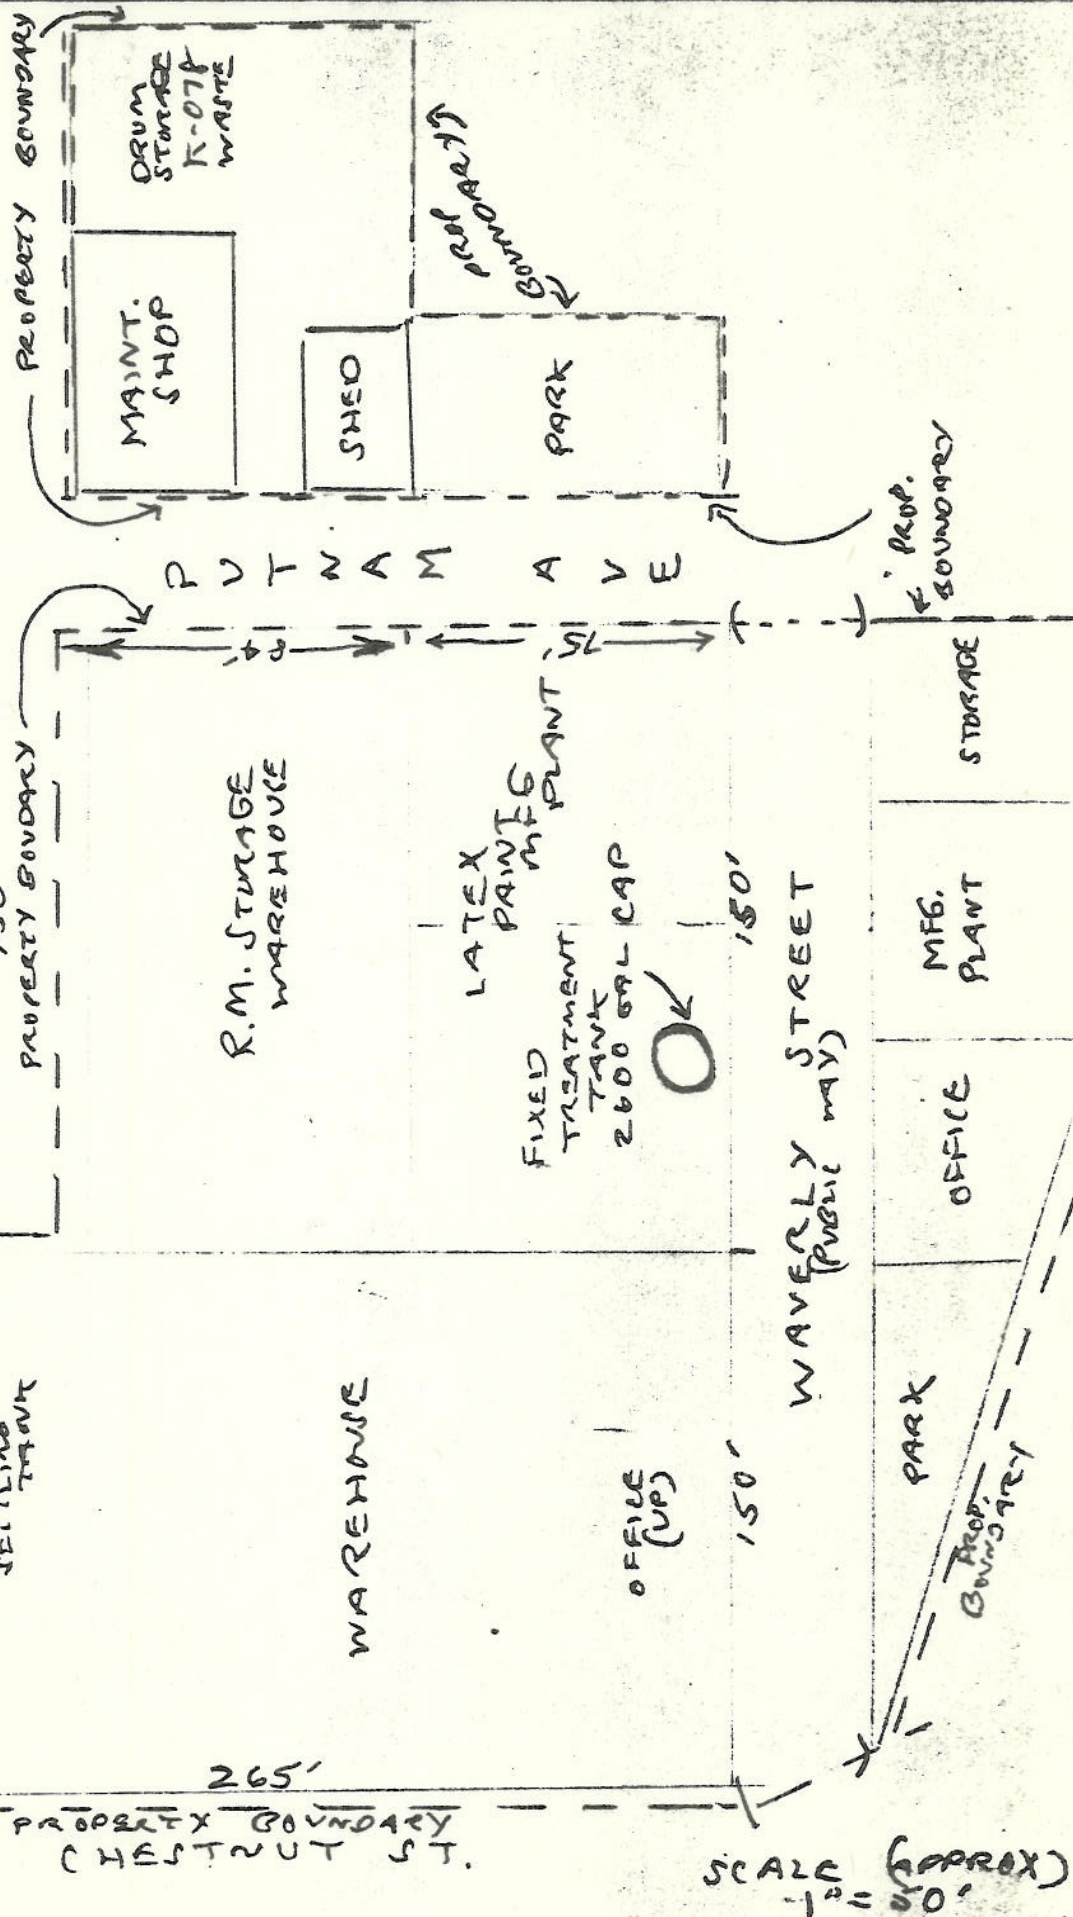 PROPERTY BOUNDARY
DRUM
STORAGE
K-078
WASTE
MAINT.
SHOP
SHED
PARK
PROP
BOUNDARY
PUTNAM AVE
PROP.
BOUNDARY
PROPERTY BOUNDARY
75'
R.M. STORAGE
WAREHOUSE
LATEX
PAINT
MFG
PLANT
FIXED
TREATMENT
TANK
2600 GAL CAP
150'
WAVERLY STREET
(PUBLIC WAY)
STORAGE
MFG.
PLANT
OFFICE
PARK
PROP.
BOUNDARY
SETTLING
TANK
WAREHOUSE
OFFICE
(UP)
150'
265'
PROPERTY BOUNDARY
CHESTNUT ST.
SCALE (APPROX)
1" = 50'